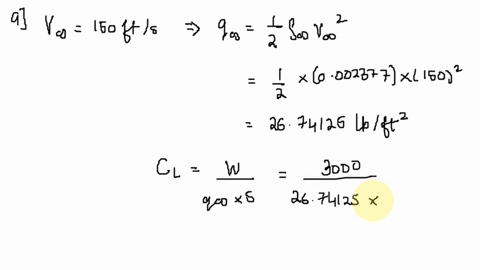 a] V∞ = 150 ft/s ⇒ q∞ = 1/2 ρ∞ V∞²
= 1/2 × (0.002377) × (150)²
= 26.74125 lb/ft²
C_L = W / q∞ × S = 3000 / 26.74125 ×